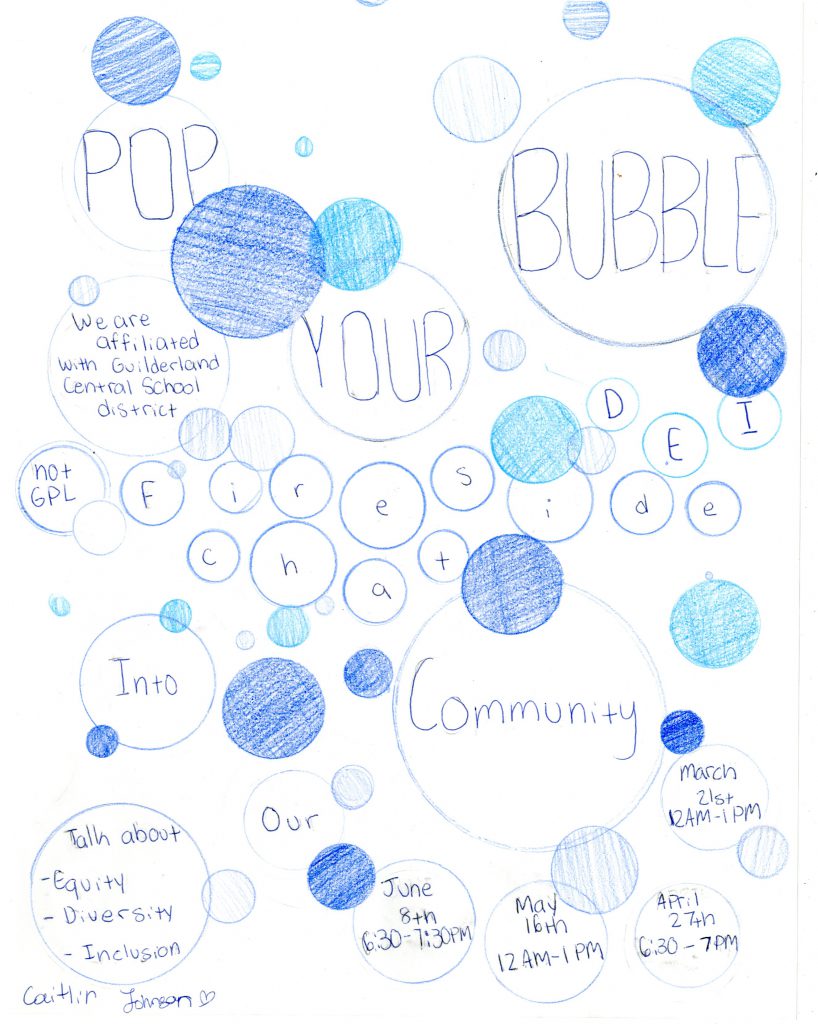 POP
BUBBLE
YOUR
We are
affiliated
with Guilderland
Central School
district
not
GPL
DEI
Fireside
chat
Into
Community
Our
March
21st
12AM-1PM
Talk about
-Equity
- Diversity
- Inclusion
June
8th
6:30-7:30PM
May
16th
12AM-1PM
April
27th
6:30-7PM
Caitlin Johnson